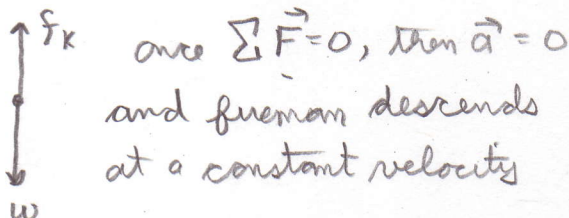 f_k
once ∑F⃗=0, then a⃗=0
and fireman descends
at a constant velocity
w